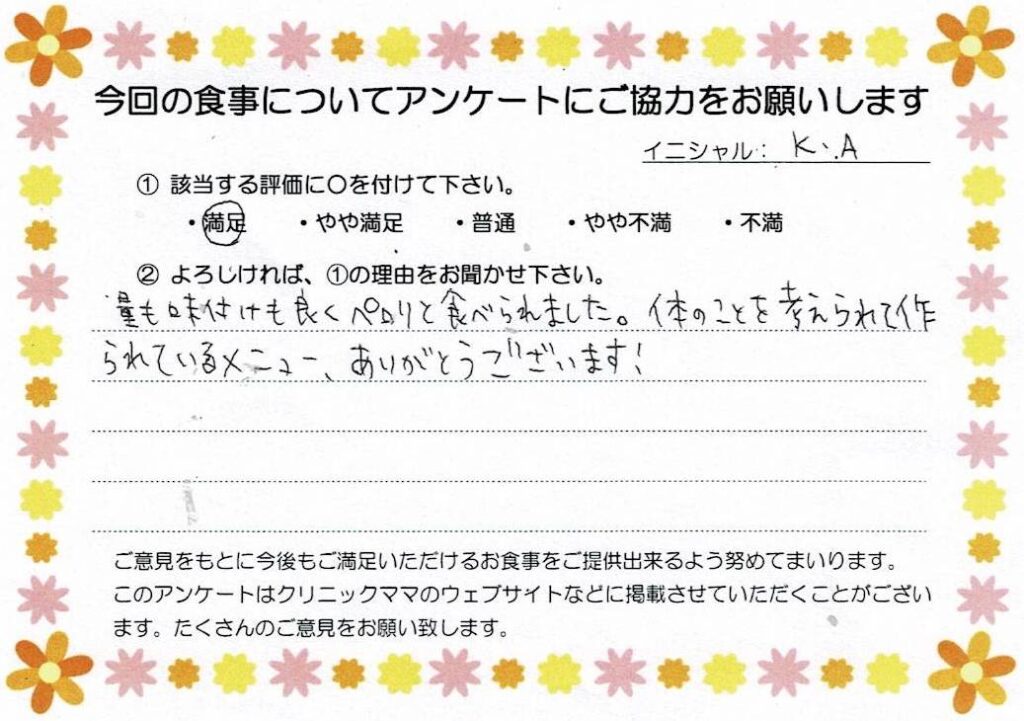 今回の食事についてアンケートにご協力をお願いします
イニシャル： K.A
① 該当する評価に〇を付けて下さい。
・満足 ・やや満足 ・普通 ・やや不満 ・不満
② よろしければ、①の理由をお聞かせ下さい。
量も味付けも良くペロリと食べられました。体のことを考えられて作
られているメニュー、ありがとうございます！
ご意見をもとに今後もご満足いただけるお食事をご提供出来るよう努めてまいります。
このアンケートはクリニックママのウェブサイトなどに掲載させていただくことがござい
ます。たくさんのご意見をお願い致します。